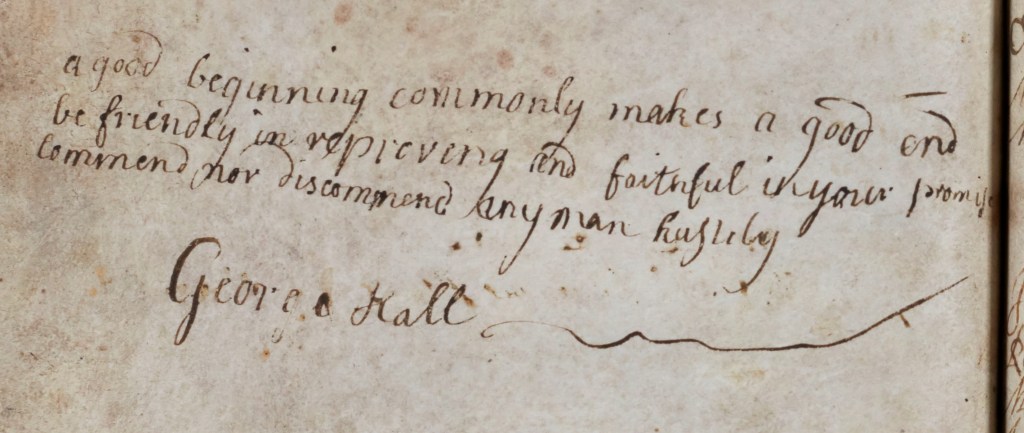 a good beginning commonly makes a good end
be friendly in repreveng and faithful in your promise
commend nor discommend any man hastely
George Hall